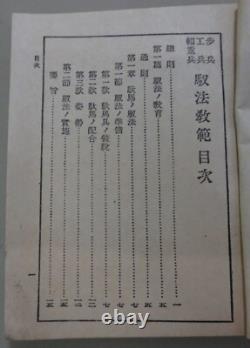 歩兵
工兵
輜重兵
馭法教範目次
總則……一
第一篇 馭法ノ教育……五
通則……五
第一章 馱馬ノ馭法……七
第一節 馭法ノ準備……七
第一款 馱馬ノ裝……七
第二款 馱馬ノ配合……一二
第三款 姿勢……一四
第二節 馭法ノ實施……一五
要旨……一五
目次
一